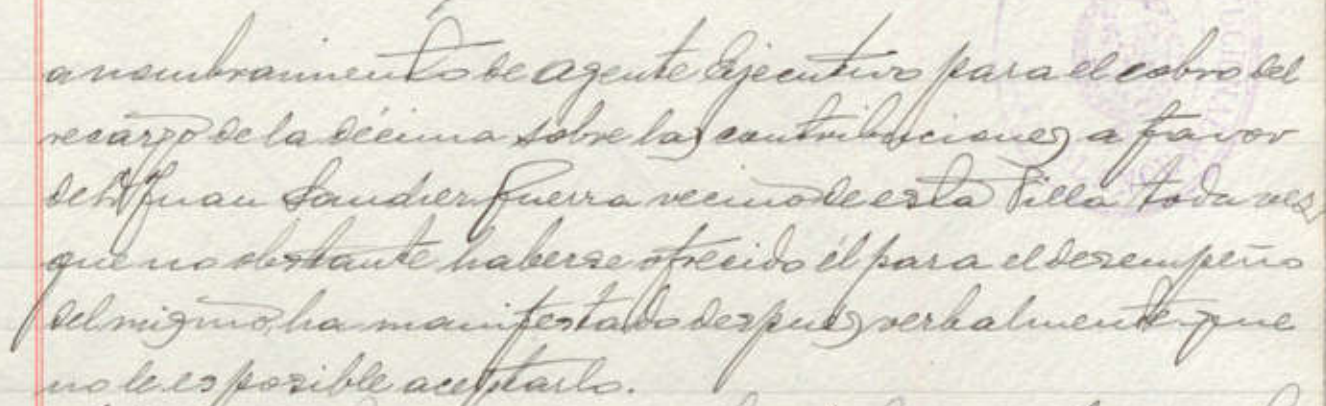 a nombramiento de agente Ejecutivo para el cobro del
recargo de la décima sobre las contribuciones, a favor
de D. Juan Sanchez Guerra vecino de esta Villa toda vez
que no obstante haberse ofrecido él para el desempeño
del mismo, ha manifestado despues verbalmente que
no le es posible aceptarlo.